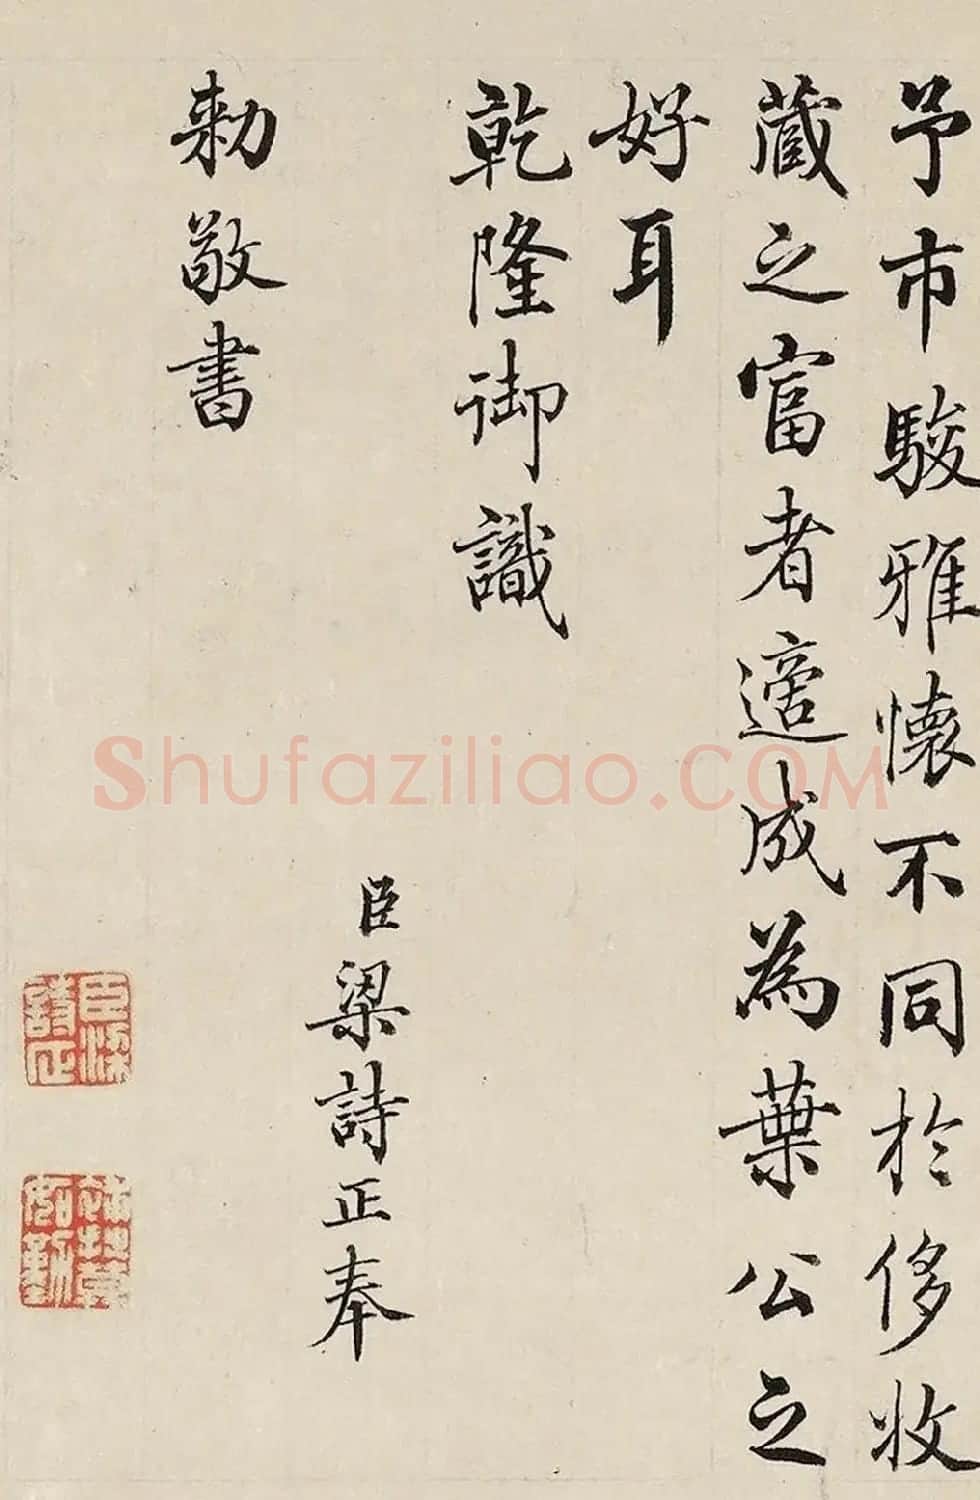 予市駿雅懷不同於侈收
藏之富者適成為葉公之
好耳
乾隆御識
臣梁詩正奉
勅敬書
臣梁詩正
Shufaziliao.COM